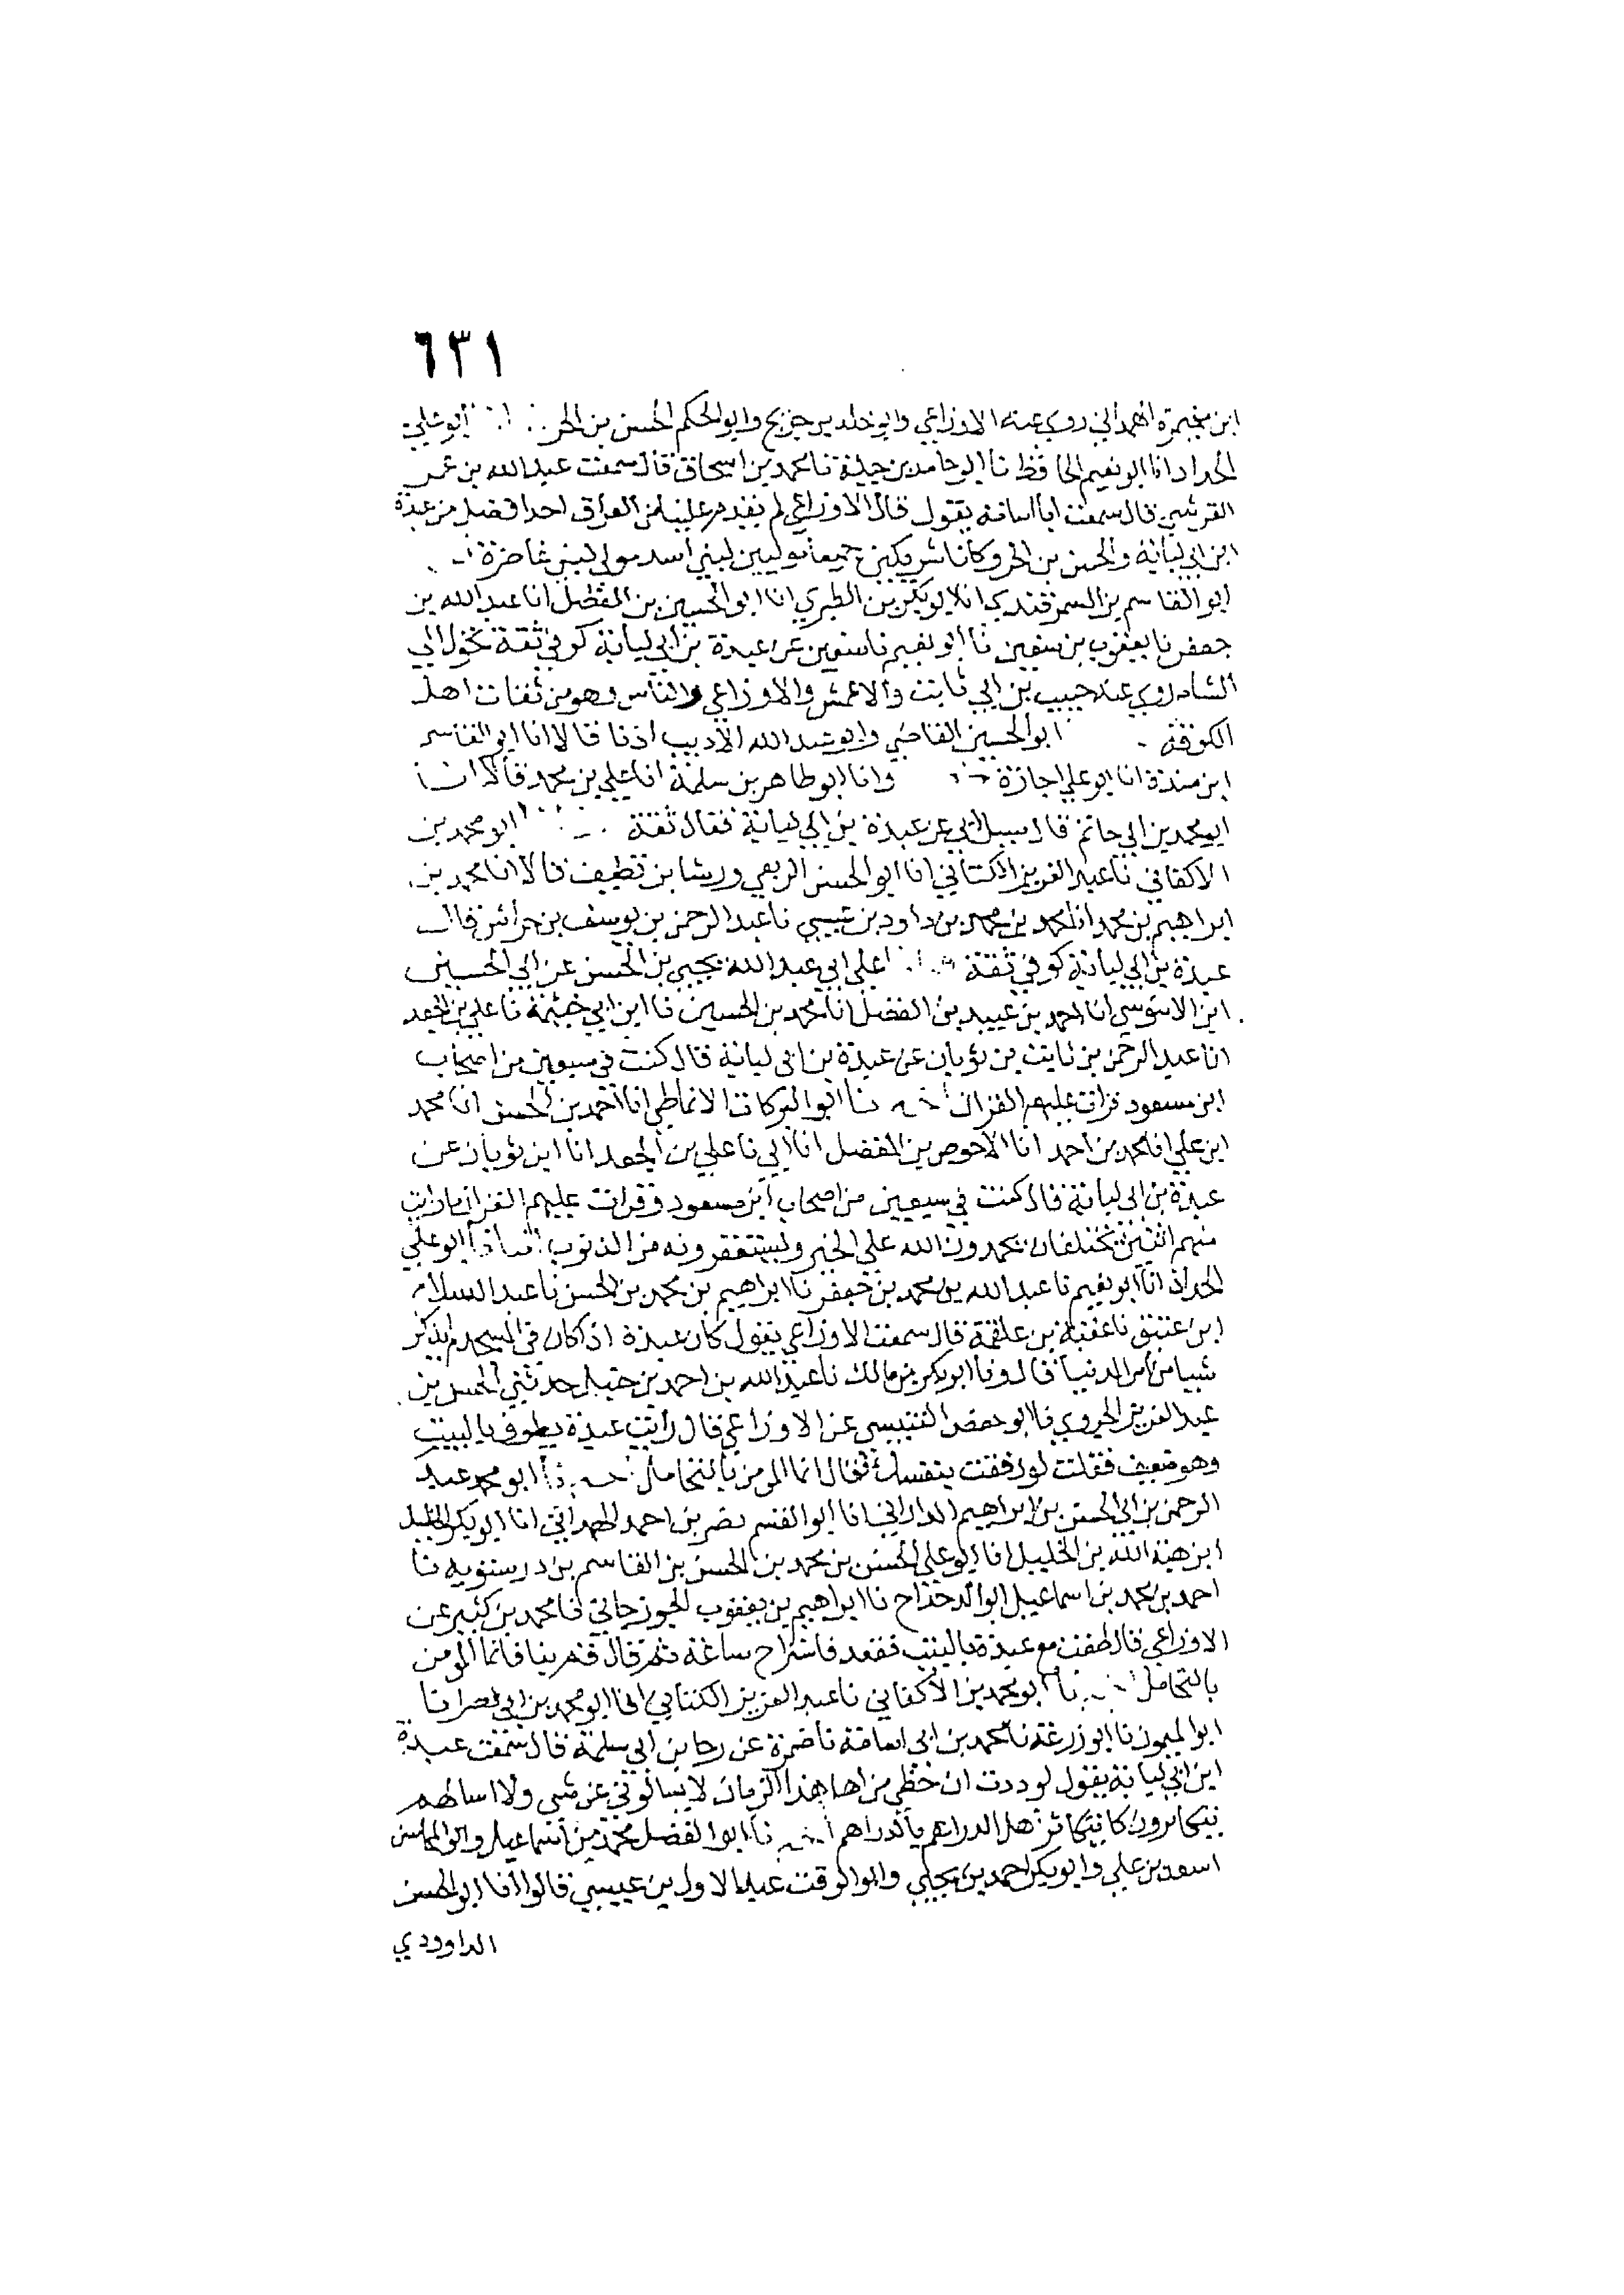 ٦٣١
ابن مخيمرة الهمداني روي عنه الاوزاعي وابو خلد بن جريج وابو الحكم الحسن بن الحر ابو علي
الحداد انا ابو نعيم الحافظ نا ابو حامد بن جبلة نا محمد بن اسحاق قال سمعت عبد الله بن عمر
القرشي قال سمعت ابا اسامة يقول قال الاوزاعي لم يقدم علينا من العراق احد افضل من عبدة
ابن ابي لبابة والحسن بن الحر وكانا شريكين جميعا موليين لبني اسد مولي لبني غاضرة
ابو القاسم بن السمرقندي انا ابو بكر بن الطبري انا ابو الحسين بن الفضل انا عبد الله بن
جعفر نا يعقوب بن سفين نا ابو نعيم نا سفين عن عبدة بن ابي لبابة كوفي ثقة تحول الي
الشام روي عنه حبيب بن ابي ثابت والاعمش والاوزاعي والناس وهو من ثقات اهل
الكوفة ابو الحسين القاضي وابو عبد الله الاديب اذنا قالا انا ابو القاسم
ابن مندة انا ابو علي اجازة وانا ابو طاهر بن سلمة انا علي بن محمد قالا انا
ابو محمد بن ابي حاتم قال سيل ابي عن عبدة بن ابي لبابة فقال ثقة ابو محمد بن
الاكفاني نا عبد العزيز الكتاني انا ابو الحسن الربعي ورشا بن نظيف قالا انا محمد بن
ابراهيم بن محمد انا محمد بن محمد بن داود بن عيسي نا عبد الرحمن بن يوسف بن خراش قال
عبدة بن ابي لبابة كوفي ثقة علي ابي عبد الله يحيي بن الحسن عن ابي الحسين
ابن الابنوسي انا احمد بن عبيد بن الفضل انا محمد بن الحسين نا ابن ابي خيثمة نا علي بن الجعد
انا عبد الرحمن بن ثابت بن ثوبان عن عبدة بن ابي لبابة قال كنت في سبعين من اصحاب
ابن مسعود قرات عليهم القران نا ابو البركات الانماطي انا احمد بن الحسن انا محمد
ابن علي انا محمد بن احمد انا الاحوص بن المفضل انا ابي نا علي بن الجعد انا ابن ثوبان عن
عبدة بن ابي لبابة قال كنت في سبعين من اصحاب ابن مسعود وقرات عليهم القران ما رايت
منهم اثنين يختلفان يحمدون الله علي الخير ويستغفرونه من الذنوب ابو علي
الحداد انا ابو نعيم نا عبد الله بن محمد بن جعفر نا ابراهيم بن محمد بن الحسن نا عبد السلام
ابن عتيق نا عقبة بن علقمة قال سمعت الاوزاعي يقول كان عبدة اذا كان في المسجد لم يذكر
شيا من امر الدنيا قال ونا ابو بكر بن مالك نا عبد الله بن احمد بن حنبل حدثني الحسن بن
عبد العزيز الجروي نا ابو حفص التنيسي عن الاوزاعي قال رايت عبدة يطوف بالبيت
وهو ضعيف فقلت لو رفقت بنفسك فقال انما المومن بالتحامل ابو محمد عبد
الرحمن بن ابي الحسن بن ابراهيم الداراني انا ابو القسم نصر بن احمد الهمداني انا ابو بكر الخليل
ابن هبة الله بن الخليل انا ابو علي الحسن بن محمد بن الحسن بن القاسم بن درستويه نا
احمد بن محمد بن اسماعيل ابو الدحداح نا ابراهيم بن يعقوب الجوزجاني نا محمد بن كثير عن
الاوزاعي قال طفت مع عبدة بالبيت فقعد فاستراح ساعة ثم قال قم بنا فانما المومن
بالتحامل نا ابو محمد بن الاكفاني نا عبد العزيز الكتاني انا ابو محمد بن ابي نصر انا
ابو الميمون نا ابو زرعة نا محمد بن ابي اسامة نا ضمرة عن رجا بن ابي سلمة قال سمعت عبدة
ابن ابي لبابة يقول لوددت ان حظي من اهل هذا الزمان لا يسالوني عن شي ولا اسالهم
يتكاثرون كما يتكاثر اهل الدراهم بالدراهم نا ابو الفضل محمد بن اسماعيل وابو المحاسن
اسعد بن علي وابو بكر احمد بن يحيي وابو الوقت عبد الاول بن عيسي قالوا انا ابو الحسن
الداوودي